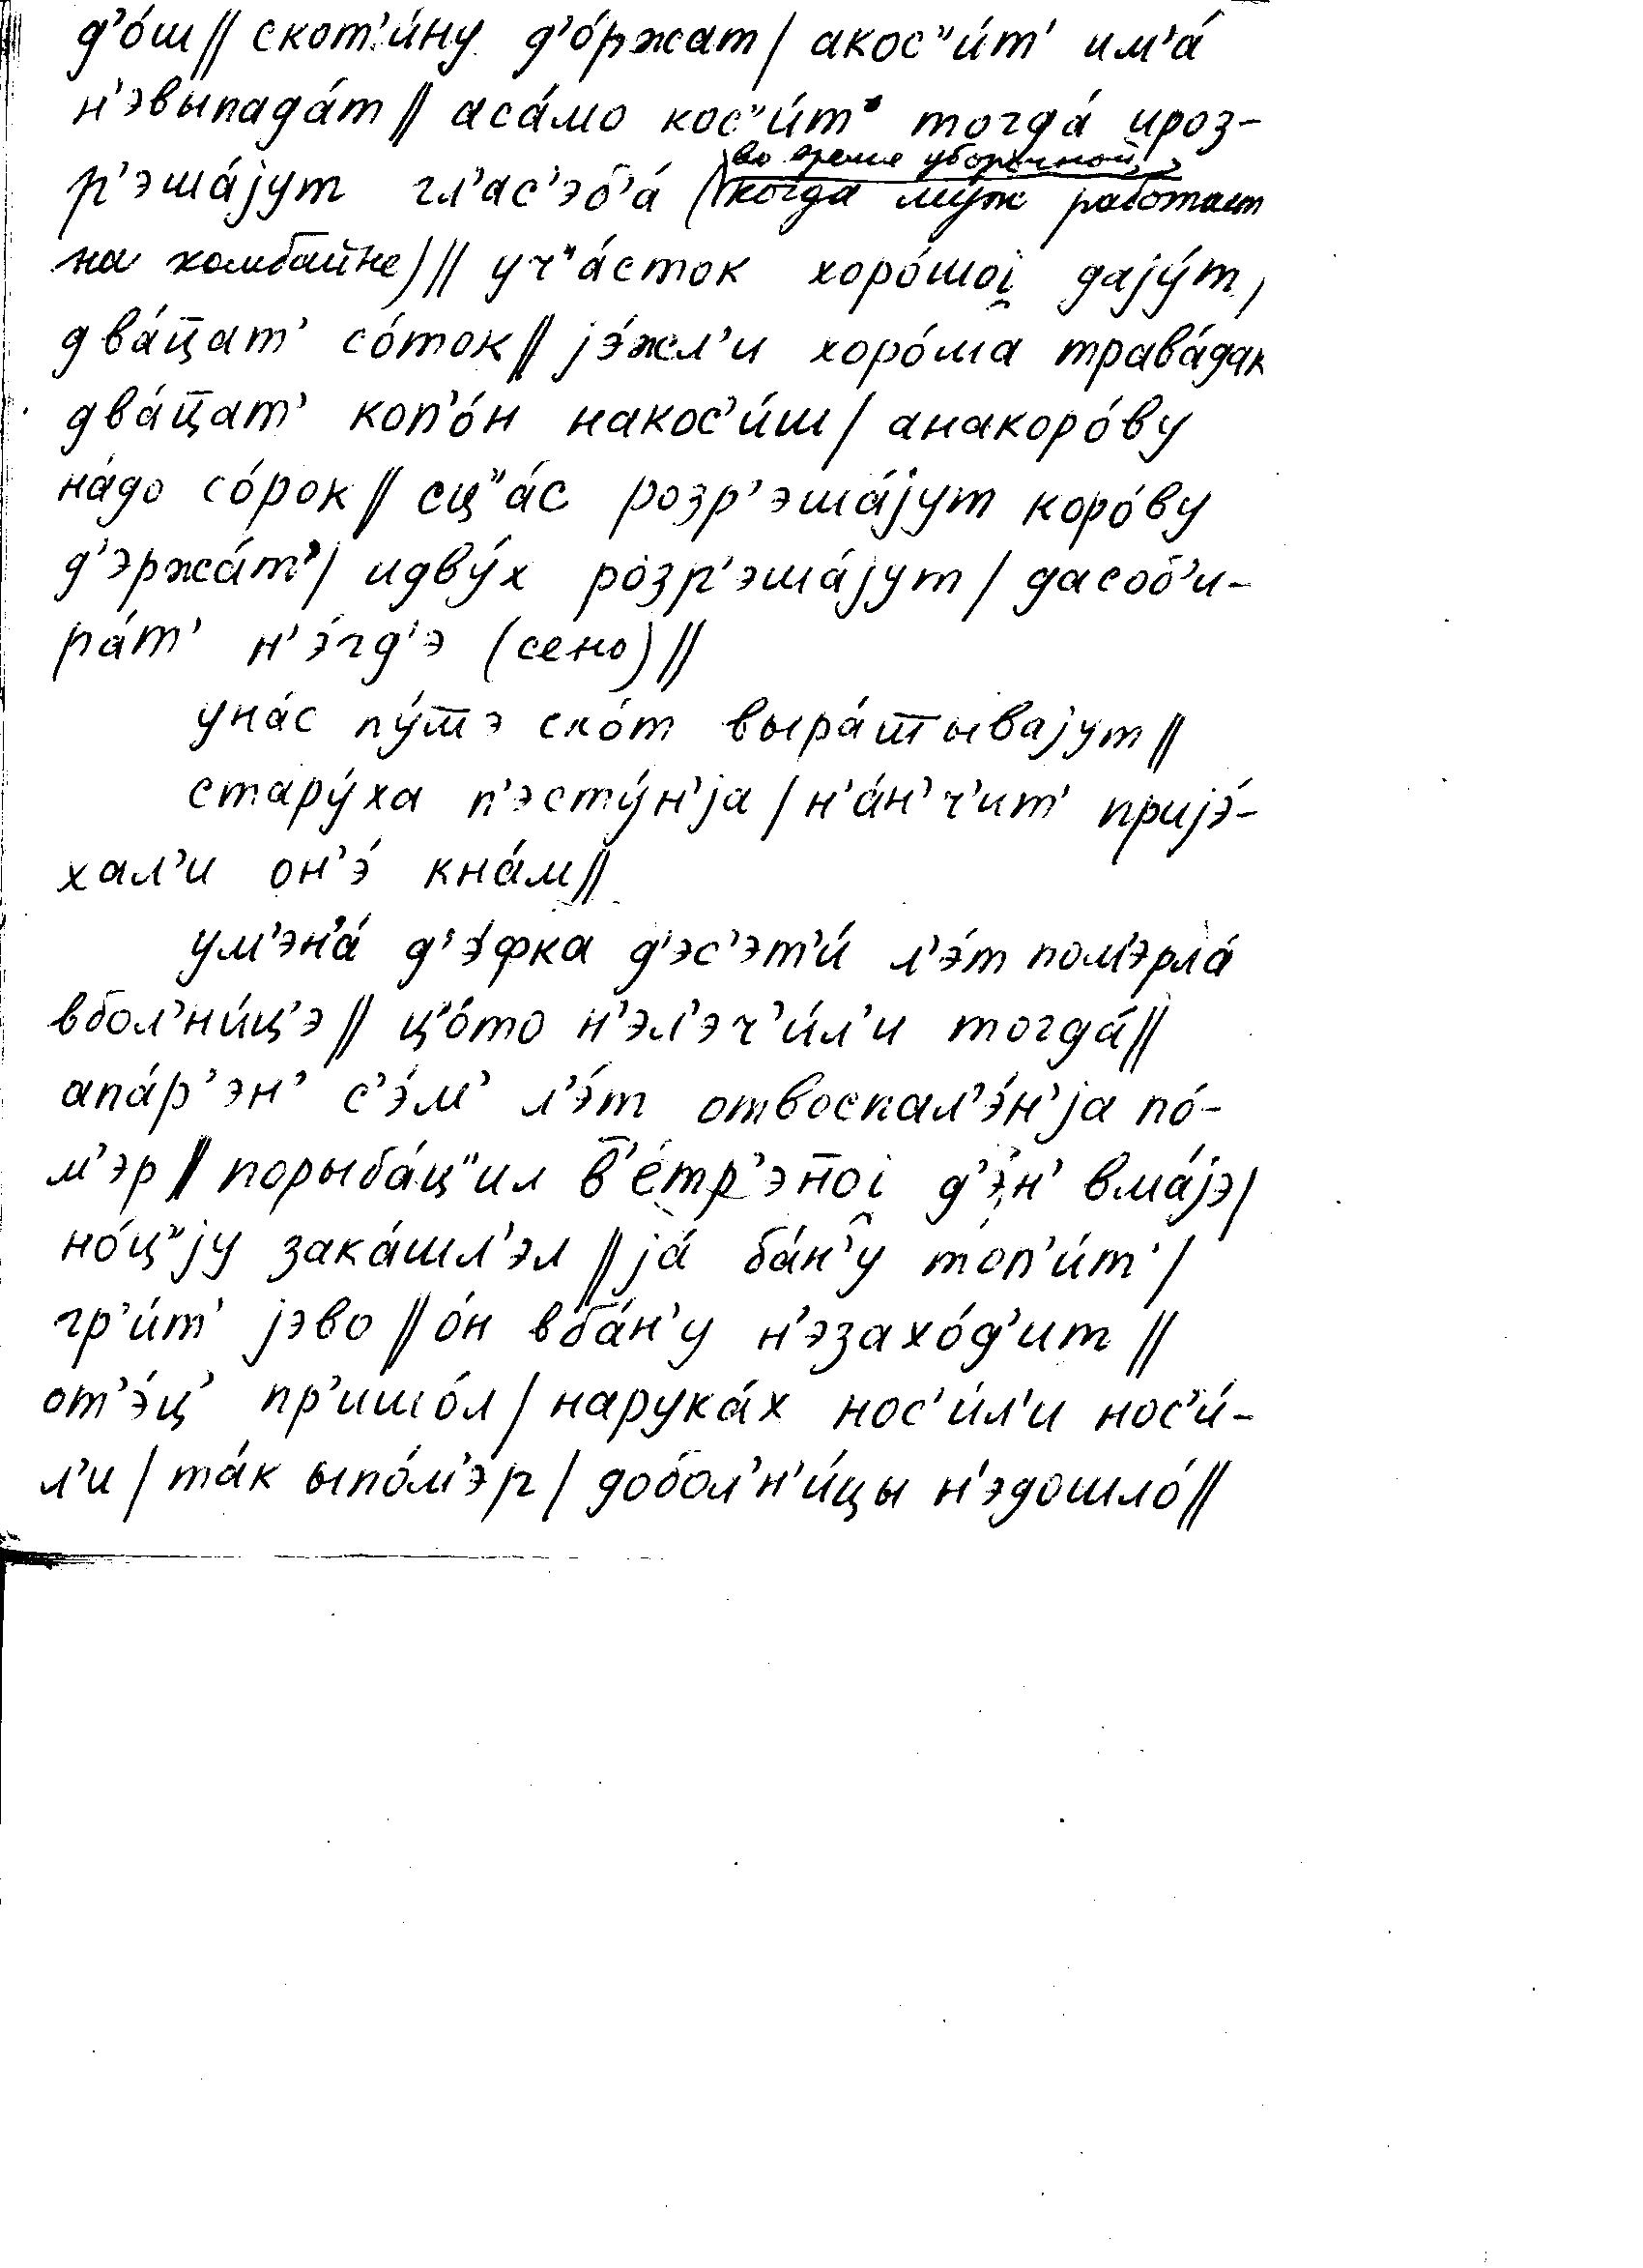 д’о́ш // скот’и́ну д’о́ржат / акос”и́т’ им’а́
н’эвыпада́т // аса́мо кос”и́т’ тогда́ ироз-
во время уборочной,
р’эша́jут гл’ас’эб’а́ (когда муж работает
на комбайне) // уч”а́сток хоро́шоi̯ даjу́т,
два́ц̄ат’ со́ток // jэ́жл’и хоро́ша трава́дак
два́ц̄ат’ коп’о́н накос’и́ш / анакоро́ву
на́до со́рок // сц”а́с розр’эша́jут коро́ву
д’эржа́т’ / идву́х розр’эша́jут / дасоб’и-
ра́т’ н’э́гд’э (сено) //
уна́с пу́ш̄э ско́т выра́ш̄ываjут //
стару́ха п’эсту́н’jа / н’а́н’ч’ит’ приjэ́-
хал’и он’э́ кна́м //
ум’эн’а́ д’э́фка д’эс’эт’и́ л’э́т пом’эрла́
вбол’ни́ц’э // ц’о́то н’эл’эч’и́л’и тогда́ //
апа́р’эн’ с’э́м’ л’э́т отвоспал’э́н’jа по́-
м’эр // порыба́ц”ил в̄’е́тр’эн̄оi̯ д’э́н’ вма́jэ /
но́ц”jу зака́шл’эл // jа́ ба́н’у топ’и́т’ /
гр’и́т’ jэво // о́н вба́н’у н’эзахо́д’ит //
от’э́ц’ пр’ишо́л / нарука́х нос’и́л’и нос’и́-
л’и / та́к ыпо́м’эр / добол’н’и́цы н’эдошло́ //